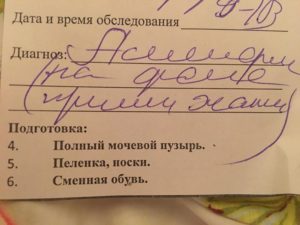 Дата и время обследования
Диагноз:
на фоне
Подготовка:
4. Полный мочевой пузырь.
5. Пеленка, носки.
6. Сменная обувь.